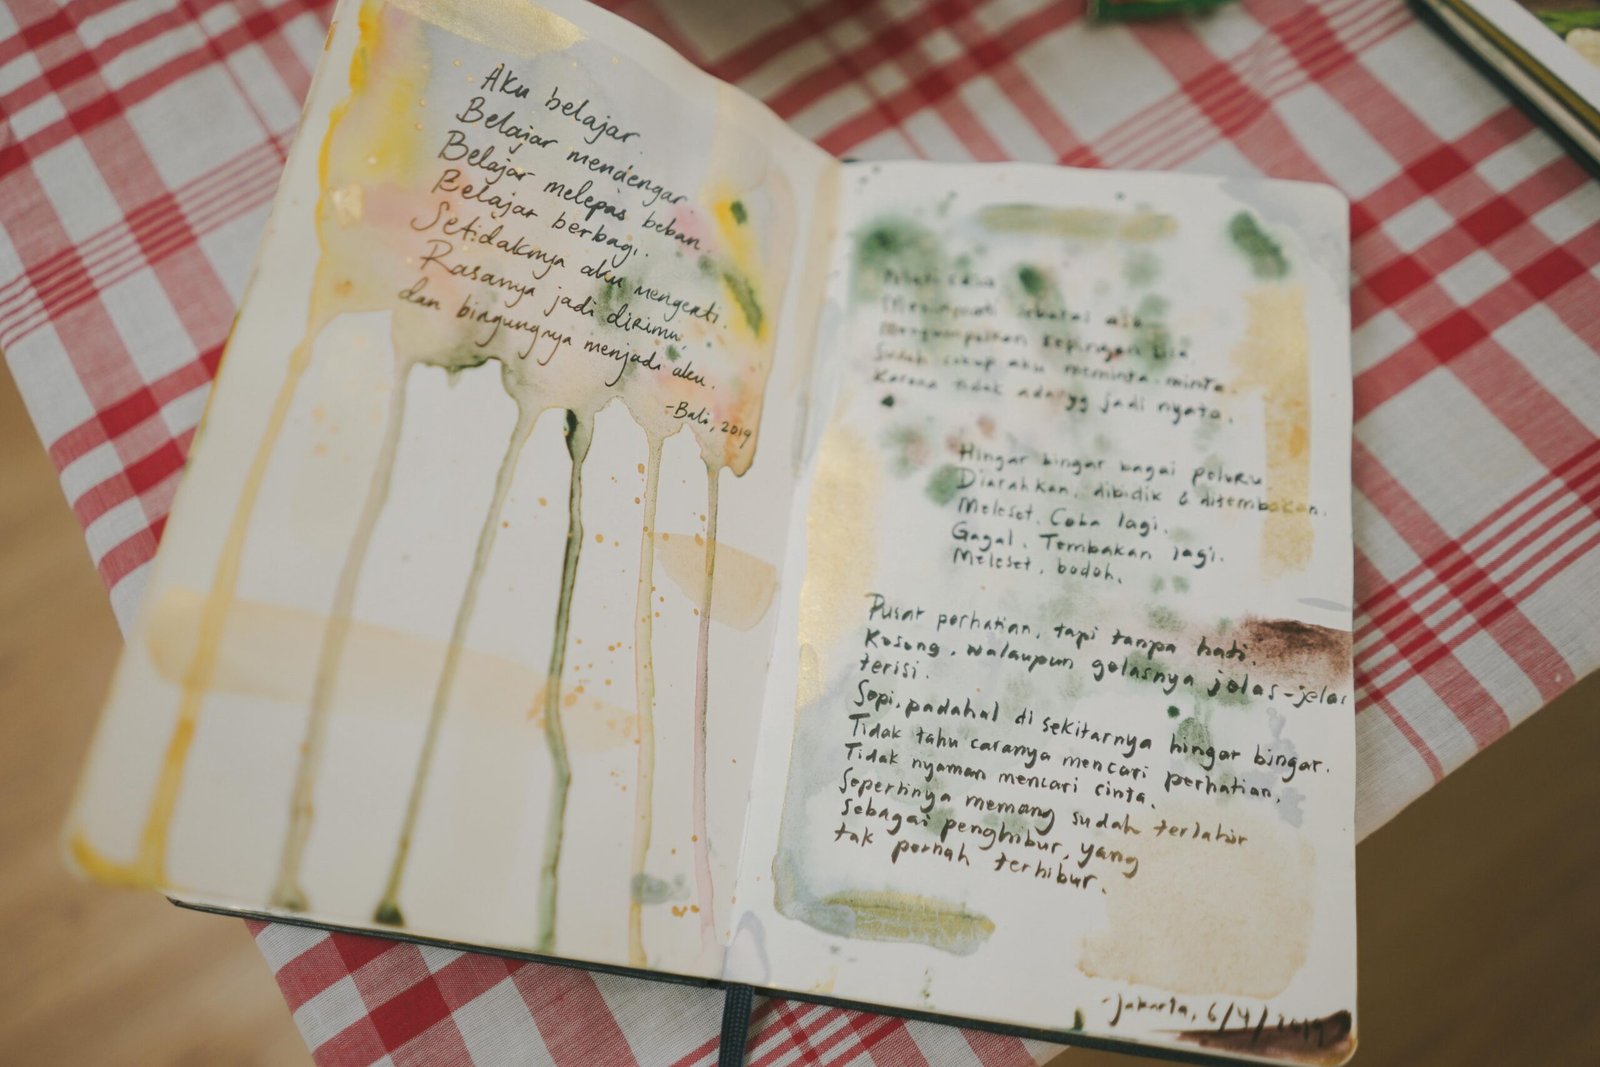 Aku belajar.
Belajar mendengar
Belajar melepas beban.
Belajar berbagi.
Setidaknya aku mengerti.
Rasanya jadi dirimu,
dan bingungnya menjadi aku.
-Bali, 2019
Sudah cukup aku meminta-minta.
Karena tidak ada yg jadi nyata.
Hingar bingar bagai peluru
Diarahkan, dibidik & ditembakan.
Meleset. Coba lagi.
Gagal. Tembakan lagi.
Meleset, bodoh.
Pusat perhatian, tapi tanpa hati.
Kosong, walaupun gelasnya jelas-jelas
terisi.
Sepi, padahal di sekitarnya hingar bingar.
Tidak tahu caranya mencari perhatian,
Tidak nyaman mencari cinta.
Sepertinya memang sudah terlahir
sebagai penghibur, yang
tak pernah terhibur.
-Jakarta, 6/4/2019